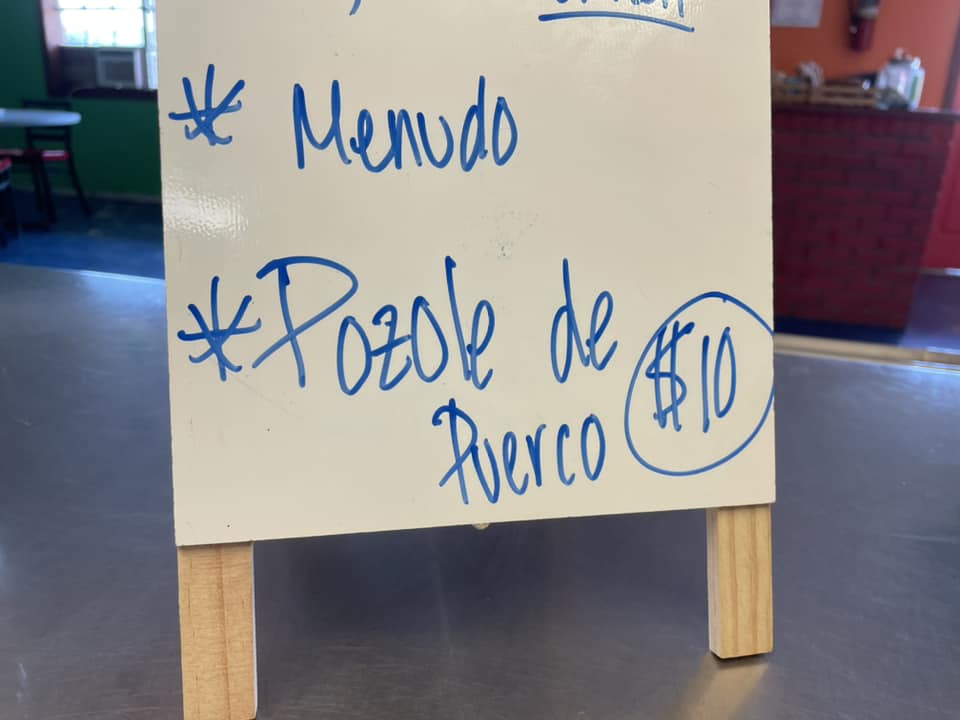 * Menudo
* Pozole de
Puerco $10